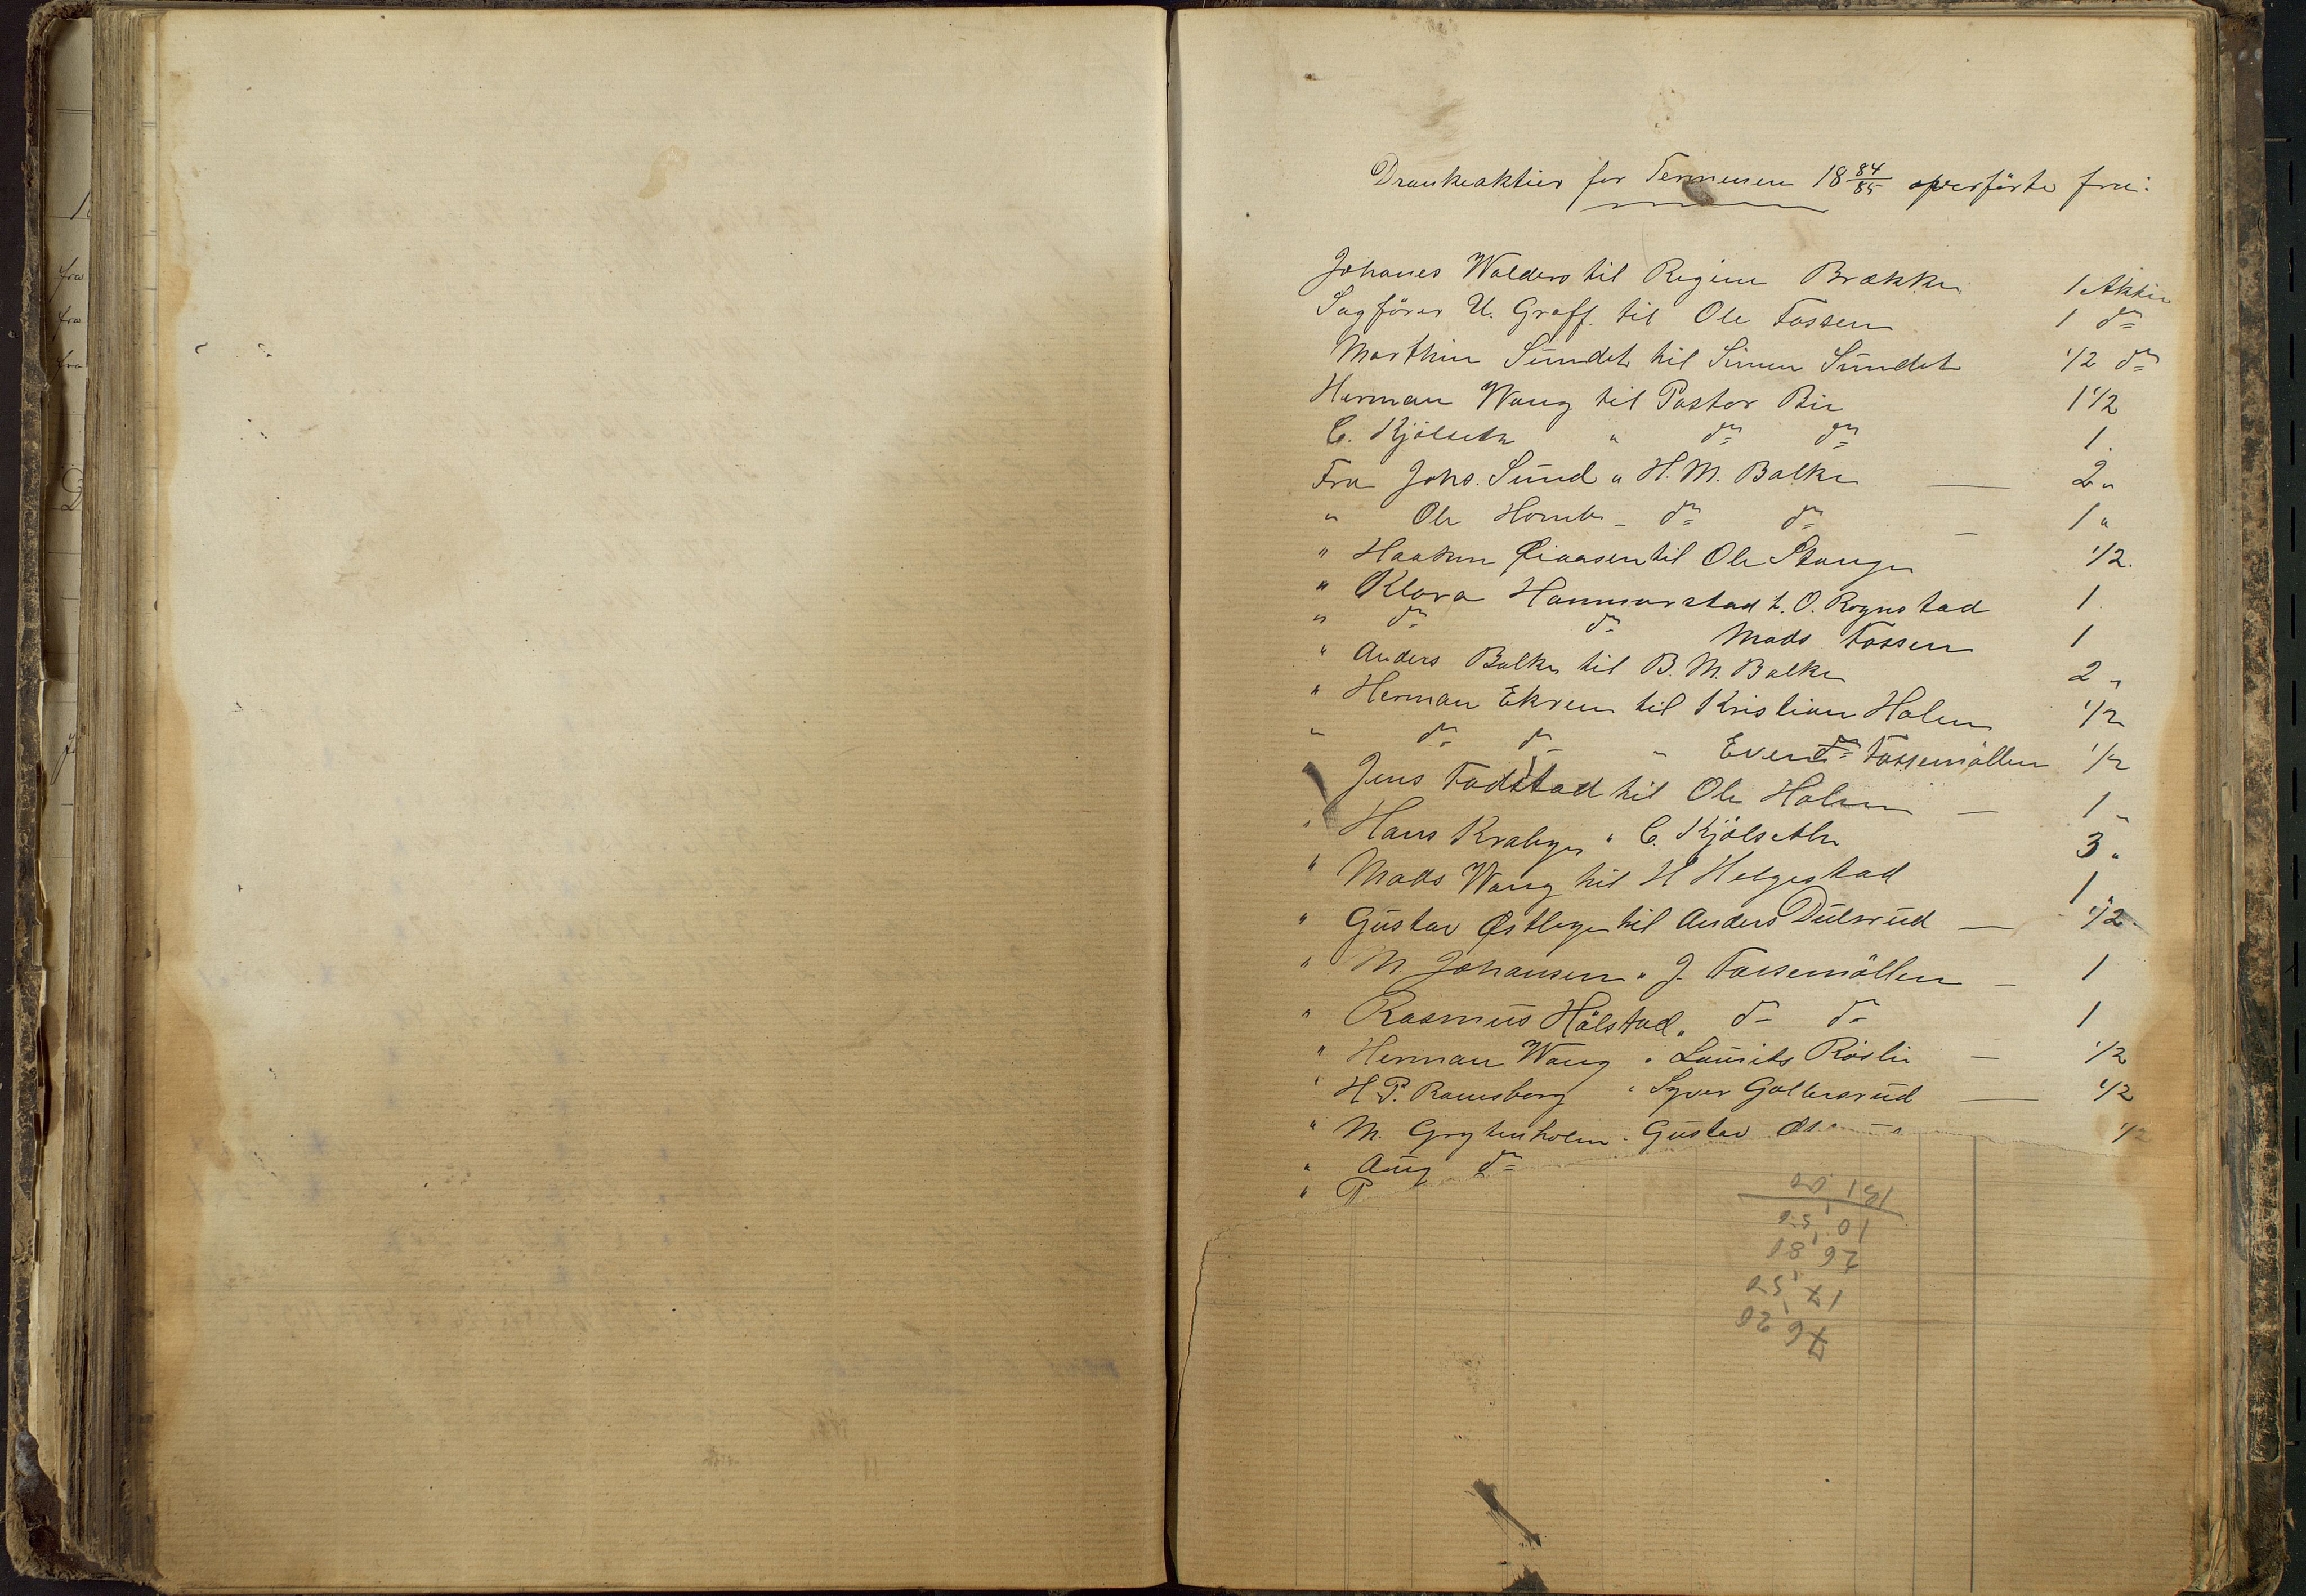 Drankeaktier for Terminen 18 84/85 overförte fra:
Johanes Walders til Regine Brække 1 Aktie
Sagförer U. Graff. til Ole Fossen 1 do
Marthin Sundet til Simen Sundet 1/2 do
Herman Wang til Pastor Bie 1 1/2
C. Kjölseth " do do 1.
Fra Johs. Sund " H. M. Balke — 2 "
" Ole Homb - do do — 1 "
" Haakon til Ole Stange 1/2.
" Klara Hammarstad t. O. Rognstad 1.
" do do Mads Fossen 1
" Anders Balke til B. M. Balke 2 "
" Herman Ekren til Kristian Holm 1/2
" do do " Even Fossemöllen 1/2
Jens Fodstad til Ole Holm — 1 "
" Hans Krabye " C. Kjölseth 3 "
" Mads Wang til H Helgestad 1 "
" Gustav Østlye til Anders Dulsrud — 1/2.
" M. Johansen " J. Fossemöllen — 1
" Rasmus Hölstad " do do 1
" Herman Wang " Laurits Röslie — 1/2
" H. P. Ramsberg " Syver Galtersrud — 1/2
" M. Grytenholm " Gustav 1/2
" Aug do
" P
76,20
17,50
26,80
10,50
131,00